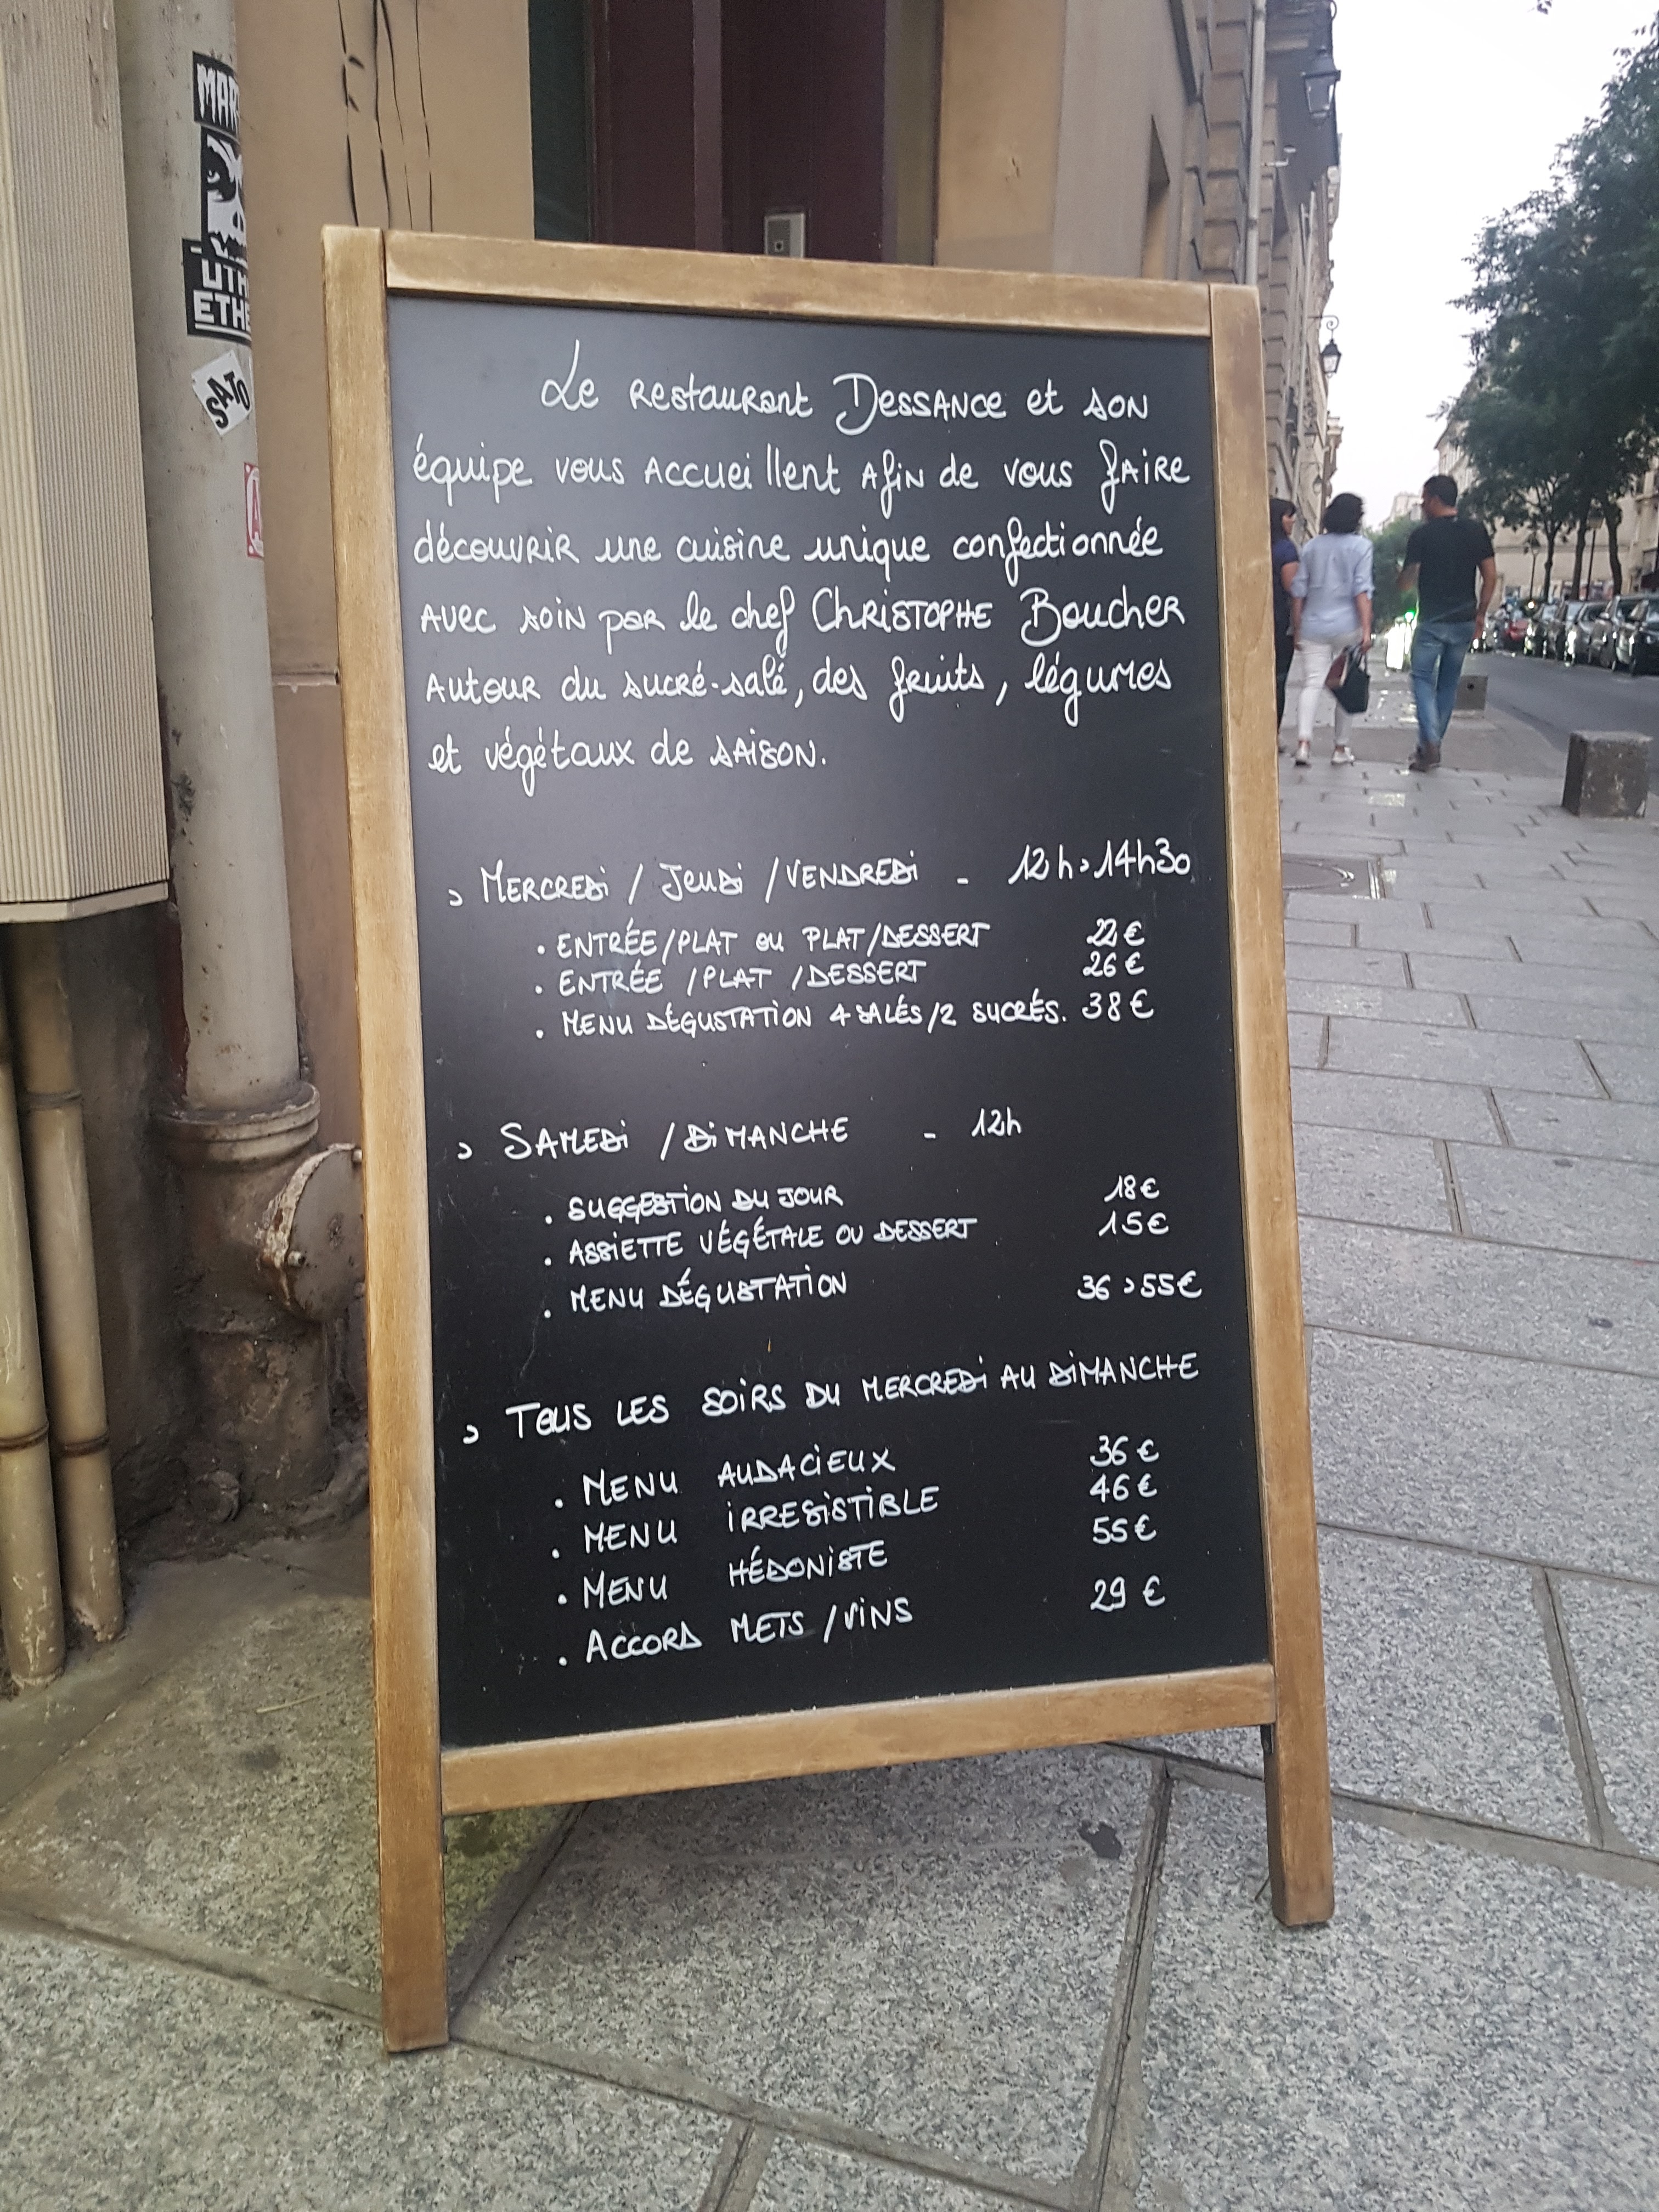 Le restaurant Dessance et son
équipe vous accueillent afin de vous faire
découvrir une cuisine unique confectionnée
avec soin par le chef Christophe Boucher
autour du sucré-salé, des fruits, légumes
et végétaux de saison.
> MERCREDI / JEUDI / VENDREDI - 12h > 14h30
. ENTRÉE/PLAT OU PLAT/DESSERT 22 €
. ENTRÉE /PLAT /DESSERT 26 €
. MENU DÉGUSTATION 4 SALÉS/2 SUCRÉS. 38 €
> SAMEDI / DIMANCHE - 12h
. SUGGESTION DU JOUR 18 €
. ASSIETTE VÉGÉTALE OU DESSERT 15 €
. MENU DÉGUSTATION 36 > 55 €
> TOUS LES SOIRS DU MERCREDI AU DIMANCHE
. MENU AUDACIEUX 36 €
. MENU IRRESISTIBLE 46 €
. MENU HÉDONISTE 55 €
. ACCORD METS / VINS 29 €
SATO